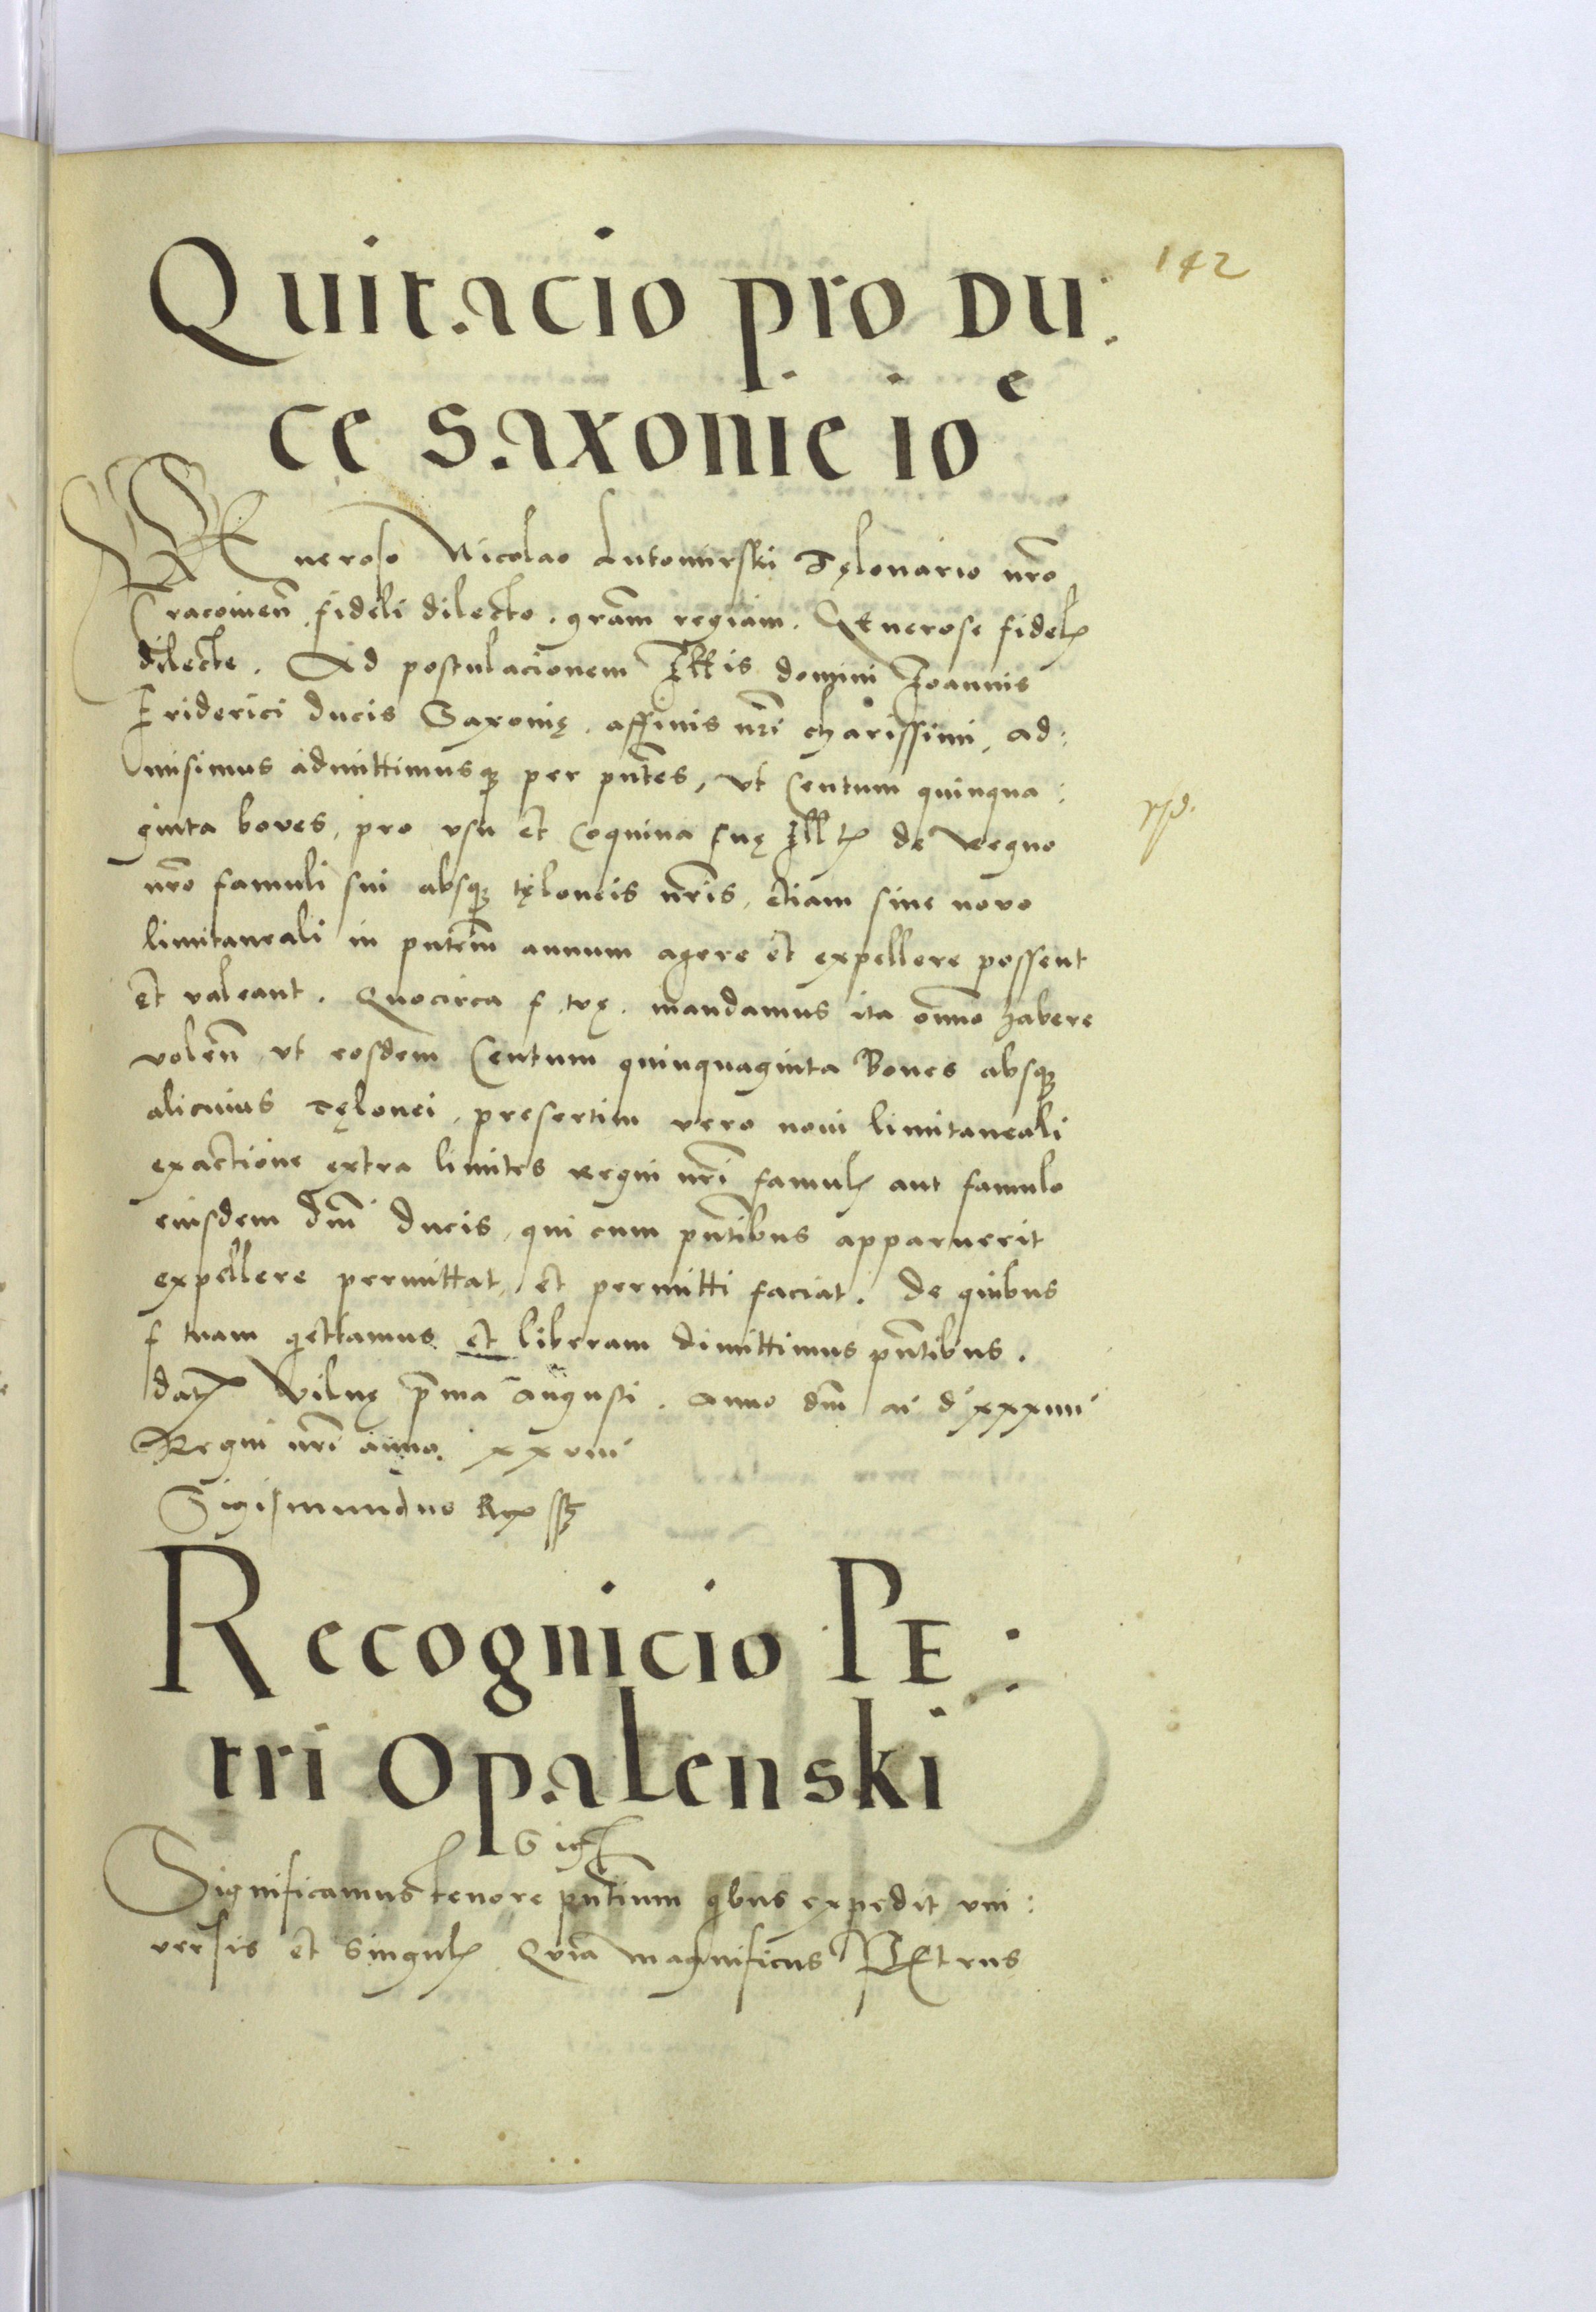 142
Quitacio pro du
ce saxonie ioe
Generoso Nicolao Lutomirski Tęlonario nro
Cracovien fideli dilecto, gram regiam. Generose fidelis
dilecte. Ad postulacionem Illis domini Joannis
Friderici ducis Saxonię, affinis nri charissimi, ad:
misimus admittimusq per pntes, ut Centum quinqua:
ginta boves, pro usu et Coquina suę Ill de Regno
nro famuli sui absq tęloneis nris, etiam sine novo
limitaneali in pntem annum agere et expellere possent
et valeant. Quocirca f. tvę. mandamus ita omno habere
volen, ut eosdem Centum quinquaginta Boves absq
alicuius tęlonei, presertim vero novi limitaneali
exactione extra limites regni nri famulis aut famulo
eiusdem dni ducis, qui cum pntibus apparuerit
expellere permittat, et permitti faciat. De quibus
f tuam qiettamus et liberam dimittimus pntibus.
dat Vilnę pma Augusti. Anno dni M D xxxiiii
Regni nri anno. xxviii
Sigismundus Rex sst
Recognicio Pe:
tri Opalenski
Sigi
Significamus tenore pntium qibus expedit uni:
versis et singulis Quia magnificus Petrus